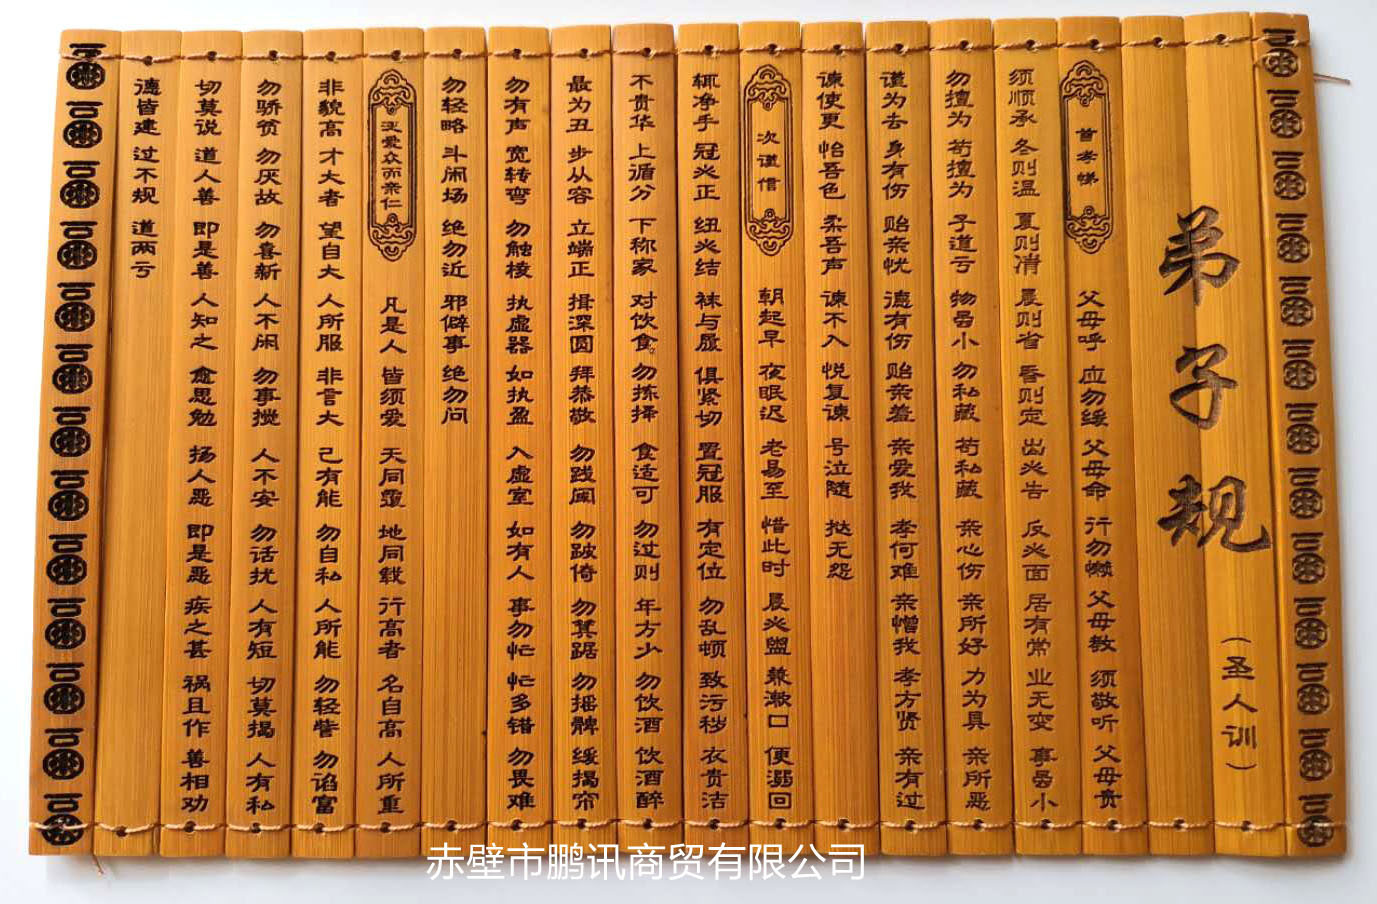 弟子规
（圣人训）
首孝悌 父母呼 应勿缓 父母命 行勿懒 父母教 须敬听 父母责
须顺承 冬则温 夏则凊 晨则省 昏则定 出必告 反必面 居有常 业无变 事虽小
勿擅为 苟擅为 子道亏 物虽小 勿私藏 苟私藏 亲心伤 亲所好 力为具 亲所恶
谨为去 身有伤 贻亲忧 德有伤 贻亲羞 亲爱我 孝何难 亲憎我 孝方贤 亲有过
谏使更 怡吾色 柔吾声 谏不入 悦复谏 号泣随 挞无怨
次谨信 朝起早 夜眠迟 老易至 惜此时 晨必盥 兼漱口 便溺回
辄净手 冠必正 纽必结 袜与履 俱紧切 置冠服 有定位 勿乱顿 致污秽 衣贵洁
不贵华 上循分 下称家 对饮食 勿拣择 食适可 勿过则 年方少 勿饮酒 饮酒醉
最为丑 步从容 立端正 揖深圆 拜恭敬 勿践阈 勿跛倚 勿箕踞 勿摇髀 缓揭帘
勿有声 宽转弯 勿触棱 执虚器 如执盈 入虚室 如有人 事勿忙 忙多错 勿畏难
勿轻略 斗闹场 绝勿近 邪僻事 绝勿问
泛爱众而亲仁 凡是人 皆须爱 天同覆 地同载 行高者 名自高 人所重
非貌高 才大者 望自大 人所服 非言大 己有能 勿自私 人所能 勿轻訾 勿谄富
勿骄贫 勿厌故 勿喜新 人不闲 勿事搅 人不安 勿话扰 人有短 切莫揭 人有私
切莫说 道人善 即是善 人知之 愈思勉 扬人恶 即是恶 疾之甚 祸且作 善相劝
德皆建 过不规 道两亏
赤壁市鹏讯商贸有限公司